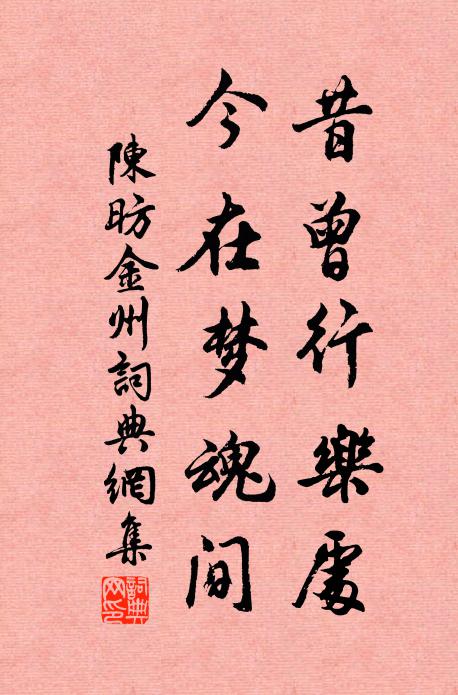 昔曾行樂處
今在梦魂間
陳昉金州詞典網集
詞典网印